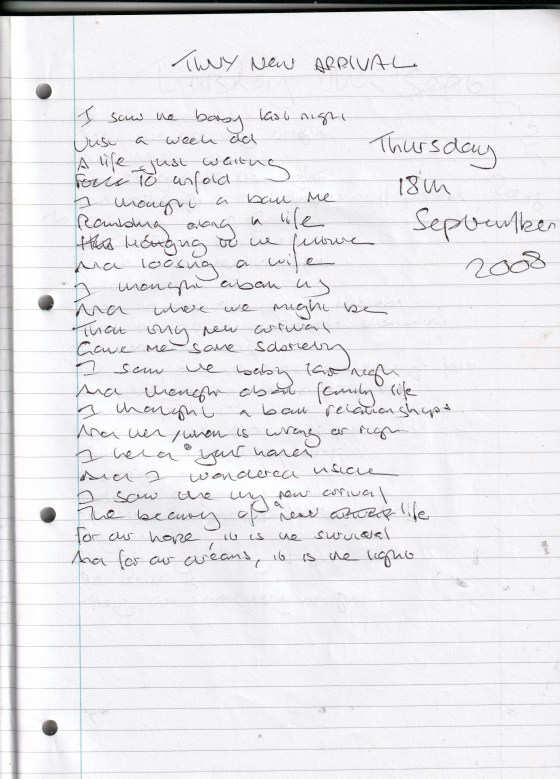 TINY NEW ARRIVAL
I saw the baby last night
Just a week old
A life just waiting
To unfold
I thought about me
Rambling along in life
Hanging to the future
And loosing a wife
I thought about us
And where we might be
That tiny new arrival
Gave me some sobriety
I saw the baby last night
And thought about family life
I thought about relationships
And what is wrong or right
I held your hand
And I wondered inside
I saw the tiny new arrival
The beauty of new life
For our hope, it is the survival
And for our dreams, it is the light
Thursday
18th
September
2008